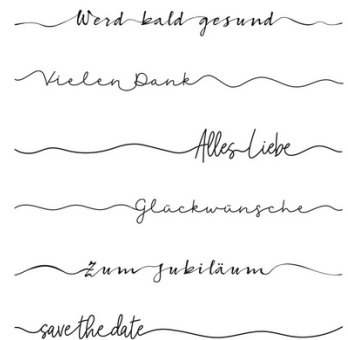 Werd bald gesund
Vielen Dank
Alles Liebe
Glückwünsche
Zum Jubiläum
save the date